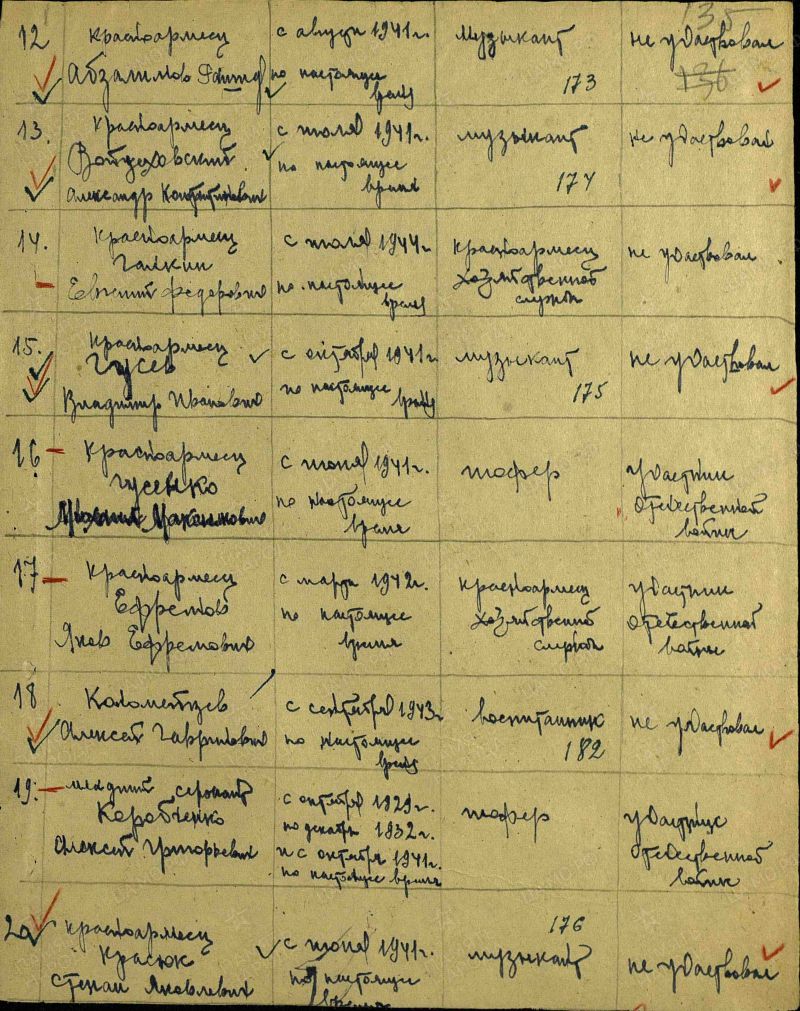 135
136
12 красноармеец
Абзалилов Рашид
с августа 1941 г.
по настоящее
время
музыкант
173
не участвовал
13. красноармеец
Войцеховский
Александр Константинович
с июля 1941 г.
по настоящее
время
музыкант
174
не участвовал
14. красноармеец
Галкин
Евгений Федорович
с июля 1944 г.
по настоящее
время
красноармеец
хозяйственной
службы
не участвовал
15. красноармеец
Гусев
Владимир Иванович
с октября 1941 г.
по настоящее
время
музыкант
175
не участвовал
16 красноармеец
Гусенко
Михаил Максимович
с июня 1941 г.
по настоящее
время
шофер
участник
отечественной
войны
17 красноармеец
Ефремов
Яков Ефремович
с марта 1942 г.
по настоящее
время
красноармеец
хозяйственной
службы
участник
отечественной
войны
18 Коломейцев
Алексей
с сентября 1943 г.
по настоящее
время
воспитанник
182
не участвовал
19. младший сержант
Коробченко
Алексей Григорьевич
с октября 1929 г.
по декабрь 1932 г.
и с октября 1941 г.
по настоящее время
шофер
отечественной
войны
20 красноармеец
Красюк
Степан Яковлевич
с июня 1941 г.
по настоящее
время
176
музыкант
не участвовал